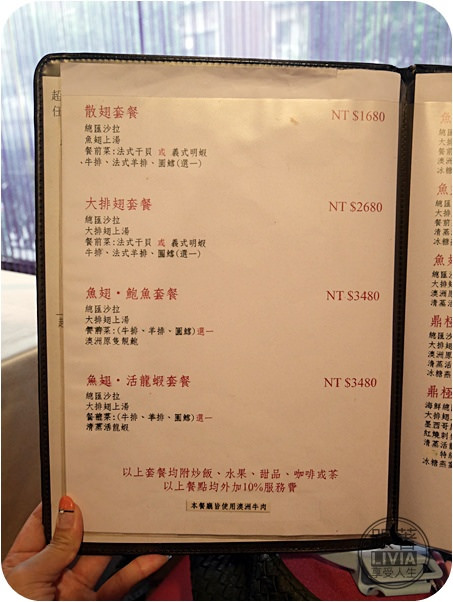 散翅套餐 NT $1680
總匯沙拉
魚翅上湯
餐前菜:法式干貝 或 義式明蝦
牛排、法式羊排、圓鱈(選一)
大排翅套餐 NT $2680
總匯沙拉
大排翅上湯
餐前菜:法式干貝 或 義式明蝦
牛排、法式羊排、圓鱈(選一)
魚翅・鮑魚套餐 NT $3480
總匯沙拉
大排翅上湯
餐前菜:(牛排、羊排、圓鱈)選一
澳洲原隻靚鮑
魚翅・活龍蝦套餐 NT $3480
總匯沙拉
大排翅上湯
餐前菜:(牛排、羊排、圓鱈)選一
清蒸活龍蝦
以上套餐均附炒飯、水果、甜品、咖啡或茶
以上餐點均外加10%服務費
本餐廳皆使用澳洲牛肉
總匯
大排
澳洲
清蒸
冰糖
鼎極
海鮮總
大排翅
墨西哥
紅燒刺
清蒸活
冰糖燕
跟著
LIVIA
享受人生